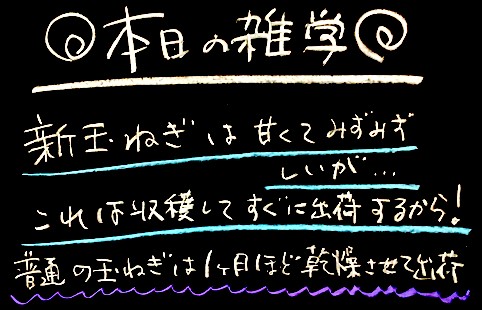 本日の雑学
新玉ねぎは甘くてみずみず
しいが…
これは収穫してすぐに出荷するから!
普通の玉ねぎは1ヶ月ほど乾燥させて出荷